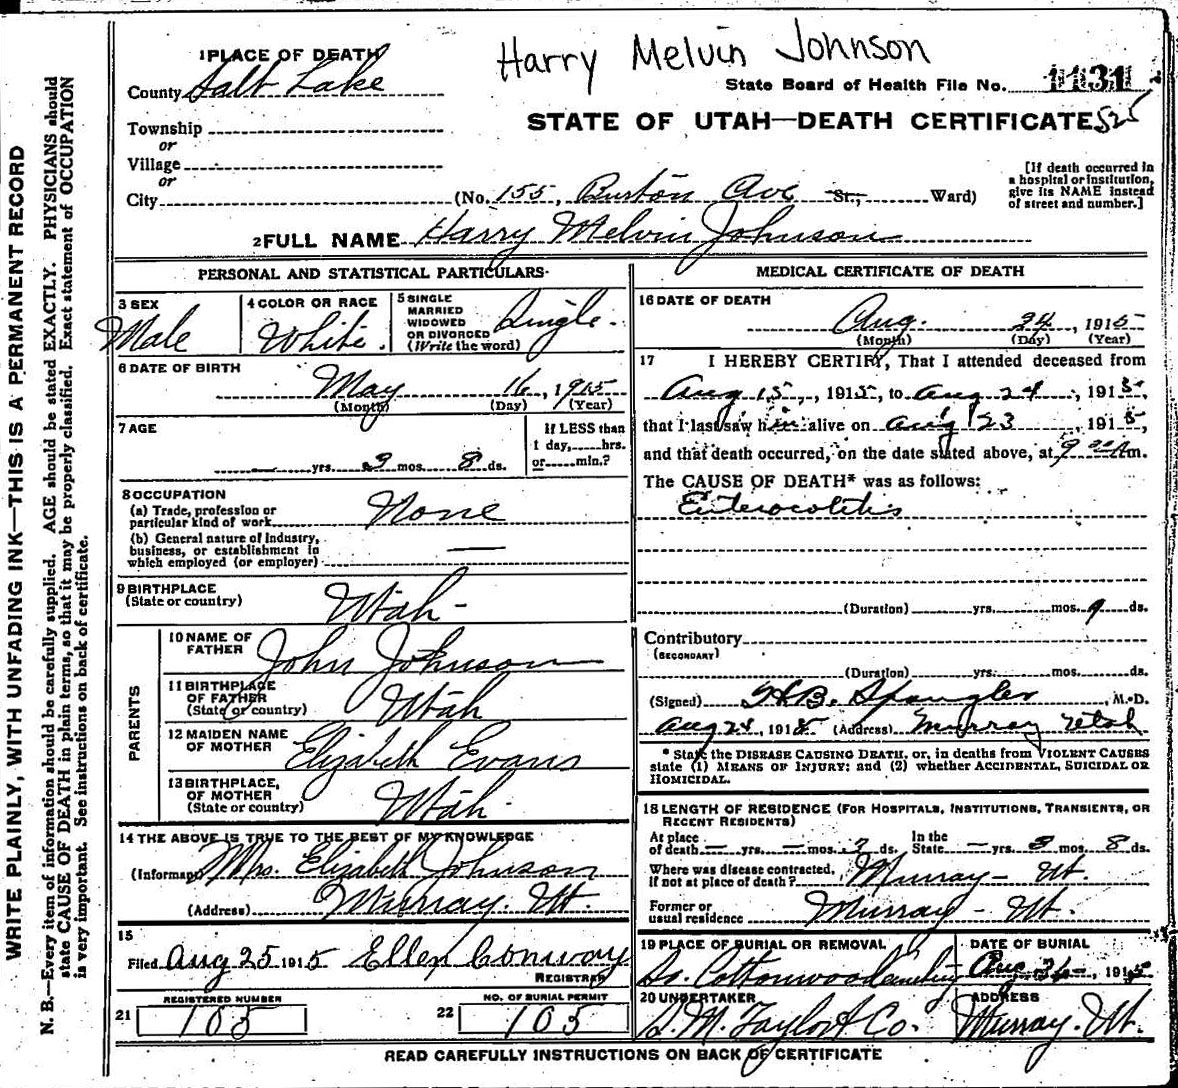 Harry Melvin Johnson
1 PLACE OF DEATH
County Salt Lake
State Board of Health File No. 1131
STATE OF UTAH—DEATH CERTIFICATE 525
Township
or
Village
or
City (No. 155, Burton Ave St., Ward)
[If death occurred in
a hospital or institution,
give its NAME instead
of street and number.]
2 FULL NAME Harry Melvin Johnson
PERSONAL AND STATISTICAL PARTICULARS
3 SEX
Male
4 COLOR OR RACE
White.
5 SINGLE
MARRIED
WIDOWED
OR DIVORCED
(Write the word)
Single.
6 DATE OF BIRTH
May 16, 1915
(Month) (Day) (Year)
7 AGE
— yrs. 3 mos. 8 ds.
If LESS than
1 day, hrs.
or min.?
8 OCCUPATION
(a) Trade, profession or
particular kind of work None
(b) General nature of Industry,
business, or establishment in
which employed (or employer) —
9 BIRTHPLACE
(State or country) Utah-
PARENTS
10 NAME OF
FATHER John Johnson
11 BIRTHPLACE
OF FATHER
(State or country) Utah
12 MAIDEN NAME
OF MOTHER Elizabeth Evans
13 BIRTHPLACE,
OF MOTHER
(State or country) Utah.
14 THE ABOVE IS TRUE TO THE BEST OF MY KNOWLEDGE
(Informant) Mrs. Elizabeth Johnson
(Address) Murray. Ut.
15
Filed Aug 25 1915 Ellen Conway
REGISTRAR
REGISTERED NUMBER
21 105
NO. OF BURIAL PERMIT
22 105
MEDICAL CERTIFICATE OF DEATH
16 DATE OF DEATH
Aug. 24, 1915
(Month) (Day) (Year)
17 I HEREBY CERTIFY, That I attended deceased from
Aug 15, 1915, to Aug 24, 1915,
that I last saw him alive on Aug 23, 1915,
and that death occurred, on the date stated above, at 9 00 A m.
The CAUSE OF DEATH* was as follows:
Enterocolitis
(Duration) yrs. mos. 9 ds.
Contributory
(SECONDARY)
(Duration) yrs. mos. ds.
(Signed) H.B. Spangler M.D.
Aug 24, 1915 (Address) Murray Utah
* State the DISEASE CAUSING DEATH, or, in deaths from VIOLENT CAUSES
state (1) MEANS OF INJURY; and (2) whether ACCIDENTAL, SUICIDAL OR
HOMICIDAL.
18 LENGTH OF RESIDENCE (FOR HOSPITALS, INSTITUTIONS, TRANSIENTS, OR
RECENT RESIDENTS)
At place
of death — yrs. — mos. ds.
In the
State — yrs. 3 mos. 8 ds.
Where was disease contracted,
if not at place of death? Murray - Ut
Former or
usual residence Murray - Ut.
19 PLACE OF BURIAL OR REMOVAL
So. Cottonwood
DATE OF BURIAL
Aug 26, 1915
20 UNDERTAKER
Taylor & Co.
ADDRESS
Murray. Ut.
READ CAREFULLY INSTRUCTIONS ON BACK OF CERTIFICATE
WRITE PLAINLY, WITH UNFADING INK—THIS IS A PERMANENT RECORD
N. B.—Every item of information should be carefully supplied. AGE should be stated EXACTLY. PHYSICIANS should
state CAUSE OF DEATH in plain terms, so that it may be properly classified. Exact statement of OCCUPATION
is very important. See instructions on back of certificate.